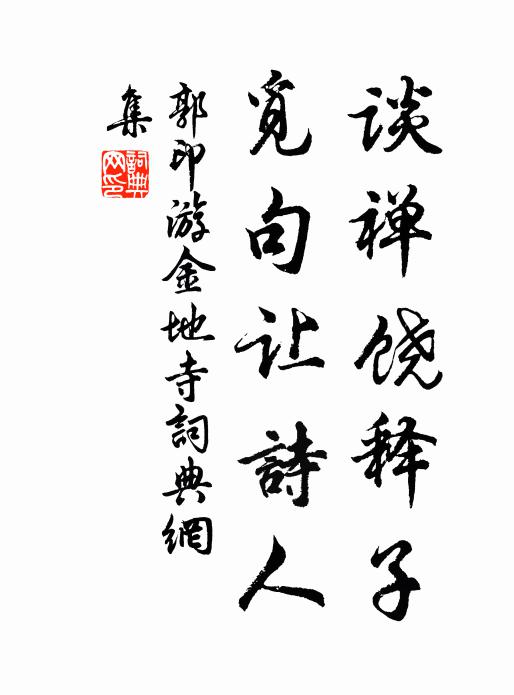 谈禅饶释子
觅句让詩人
郭印游金地寺詞典網
集
詞典网印